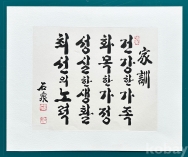 家訓
건강한 가족
화목한 가정
성실한 생활
최선의 노력
石泉
KOBAY